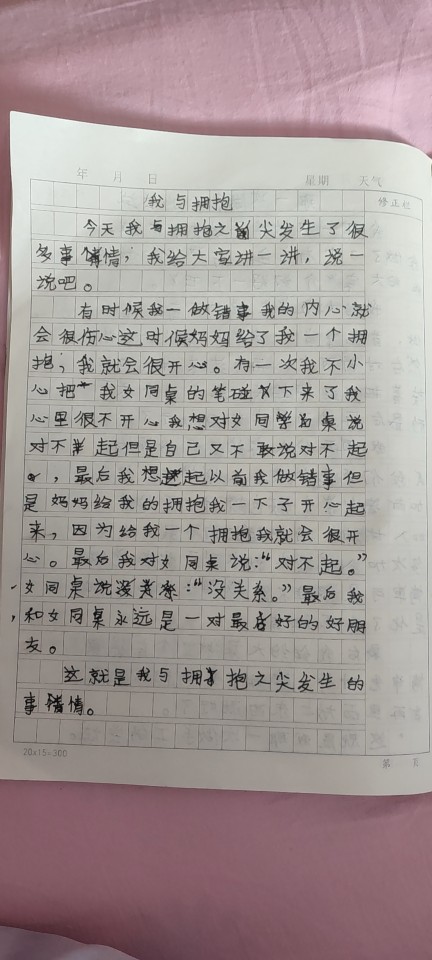 年 月 日 星期 天气
修正栏
我与拥抱
今天我与拥抱之尖发生了很
多事情，我给大家讲一讲，说一
说吧。
有时候我一做错事我的内心就
会很伤心这时候妈妈给了我一个拥
抱；我就会很开心。有一次我不小
心把我女同桌的笔碰下来了我
心里很不开心我想对女同桌说
对不起但是自己又不敢说对不起
，最后我想起以前我做错事但
是妈妈给我的拥抱我一下子开心起
来，因为给我一个拥抱我就会很开
心。最后我对女同桌说：“对不起。”
女同桌说：“没关系。”最后我
和女同桌永远是一对最好的好朋
友。
这就是我与拥抱之尖发生的
事情。
20x15=300
第 页